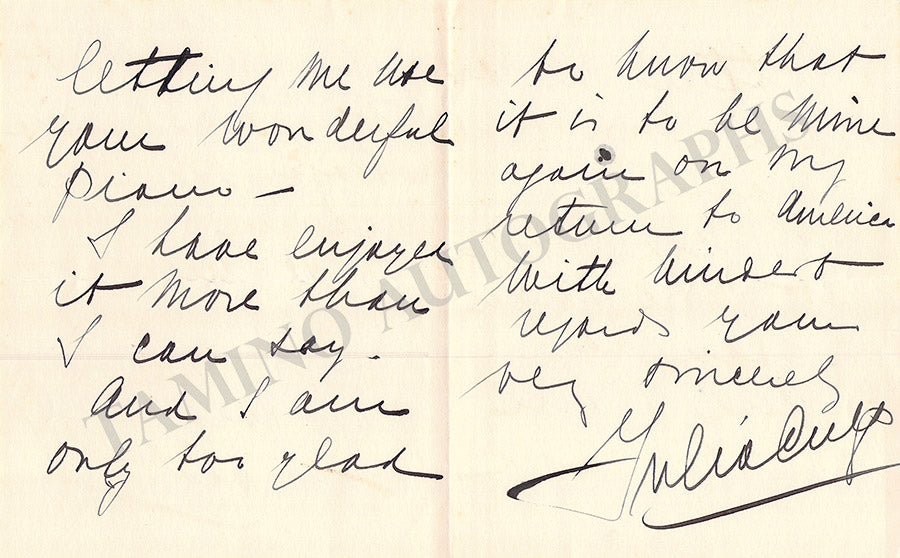 letting me use
your wonderful
piano —
I have enjoyed
it more than
I can say.
And I am
only too glad
to know that
it is to be mine
again on my
return to America
With kindest
regards your
very sincerely
Julia Culp
TAMINO AUTOGRAPHS